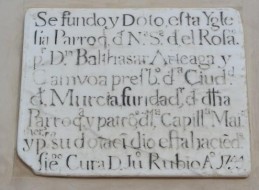 Se fundo y Doto esta Ygle
sia Parroq. d N.ª S.ª del Rosa.
p.r D.n Balthasar Arteaga y
Gamvoa presb.o d.a Ciud.d
d. Murcia, fundad.r d. dha
Parroq. y patro d. Capill.a Mai
y p. su dotaci dio esta haciēd.
sie. Cura D. Ju. Rubio A. 1744